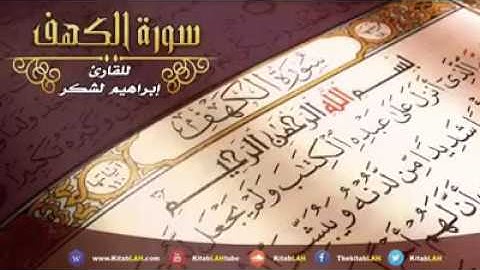 سورة الكهف
للقارئ
إبراهيم لشكر
سُورَةُ الكَهْفِ
بسم الله الرحمن الرحيم
الَّذِي أَنزَلَ عَلَى عَبْدِهِ الْكِتَبَ وَلَمْ يَجْعَل
شَدِيدًا مِّن لَّدُنْهُ وَيُبَشِّرَ
أَنَّ لَهُمْ
www.KitabLAH.com
KitabLAHtube
KitabLAH
KitabLAH
TheKitabLAH
www.KitabLAH.com